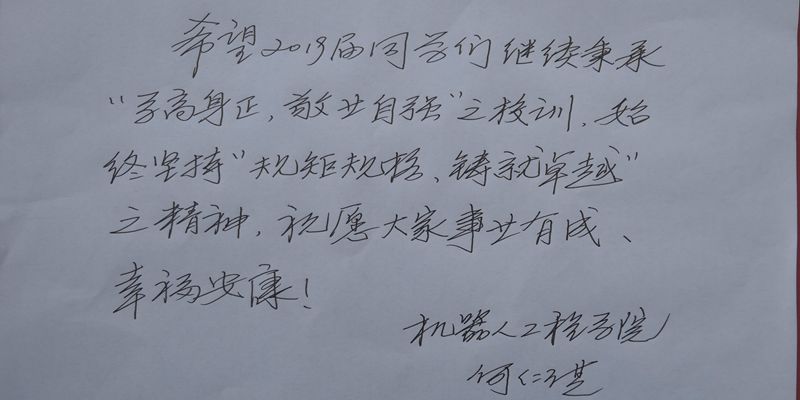 希望2019届同学们继续秉承
“学高身正，敬业自强”之校训，始
终坚持“规矩规格、铸就卓越”
之精神，祝愿大家事业有成、
幸福安康！
机器人工程学院
何仁琪